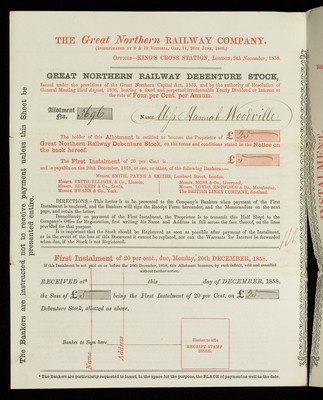 THE Great Northern RAILWAY COMPANY.
(INCORPORATED BY 9 & 10 VICTORIA, CAP. 71, 26TH JUNE, 1846.)
OFFICES—KING'S CROSS STATION, LONDON, 8th November, 1858.
GREAT NORTHERN RAILWAY DEBENTURE STOCK,
Issued under the provisions of the Great Northern Capital Act, 1853, and by the authority of Resolution of
General Meeting 23rd August, 1853, bearing a fixed and perpetual irredeemable Yearly Dividend or Interest at
the rate of Four per Cent. per Annum.
Allotment
No.
NAME Miss Hannah
The holder of this Allotment is entitled to become the Proprietor of £
Great Northern Railway Debenture Stock, on the terms and conditions stated in the Notice on
the back hereof.
The First Instalment of 20 per Cent is £5
and is payable on the 20th December, 1858, at one, or other, of the following Bankers:—
Messrs. SMITH, PAYNE & SMITHS, Lombard Street, London.
Messrs. SMITH, ELLISON, & Co., Lincoln.
Messrs. MOSS & Co., Liverpool.
Messrs. BECKETT & Co., Leeds.
Messrs. LOYD, ENTWISLE & Co., Manchester.
Messrs. SWANN & Co., York.
The BRITISH LINEN COMPANY, Scotland.
DIRECTIONS.—This Letter is to be presented to the Company's Bankers when payment of the First
Instalment is tendered, and the Bankers will sign the Receipt Form hereunder, and the Memorandum on the next
page, and retain the latter.
Immediately on payment of the First Instalment, the Proprietor is to transmit this Half Sheet to the
Company's Office for Registration, first writing his Name and Address in full across the face thereof, on the lines
provided for that purpose
It is important that the Stock should be Registered as soon as possible after payment of the Instalment,
as in the event of the loss of this Document it cannot be replaced, nor can the Warrants for Interest be forwarded
when due, if the Stock is not Registered.
First Instalment of 20 per cent., due, Monday, 20th DECEMBER, 1858.
If this Instalment be not paid on or before the 20th December, 1858, this Allotment becomes, by such default, void and cancelled
without further notice.
RECEIVED at* this day of DECEMBER, 1858,
the Sum of £5 being the First Instalment of 20 per Cent. on £
Debenture Stock, allotted as above.
Banker to Sign here
Banker to affix
RECEIPT STAMP
HERE.
Name
Address
* The Bankers are particularly requested to insert, in the space for the purpose, the PLACE of payment as well as the date.
The Bankers are instructed not to receive payment unless this Sheet be
presented entire.